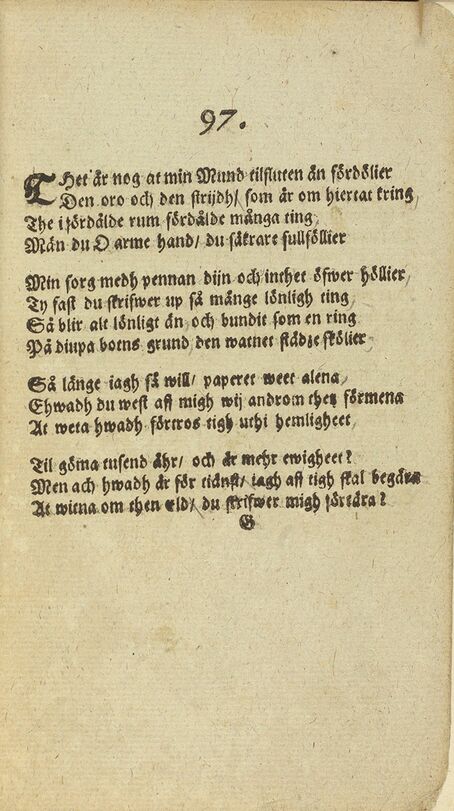 97.
THet är nog at min Mund tilsluten än fördölier
Den oro och den strijdh/ som är om hiertat kring,
The i fördälde rum fördålde många ting,
Män du O arme hand/ du säkrare fullföllier
Min sorg medh pennan dijn och inthet öfwer höllier,
Ty fast du skrifwer up så mänge lönligh ting,
Så blir alt lönligt än och bundit som en ring
På diupa botns grund den watnet städze skölier
Så länge iagh så will/ paperet weet alena,
Ehwadh du west aff migh wij androm they förmena
At weta hwadh förtros tigh uthi hemligheet,
Til göma tusend åhr/ och är mehr ewigheet?
Men ach hwadh är för tiänst/ iagh aff tigh skal begära
At witna om then eld/ du skrifwer migh förtära?
G